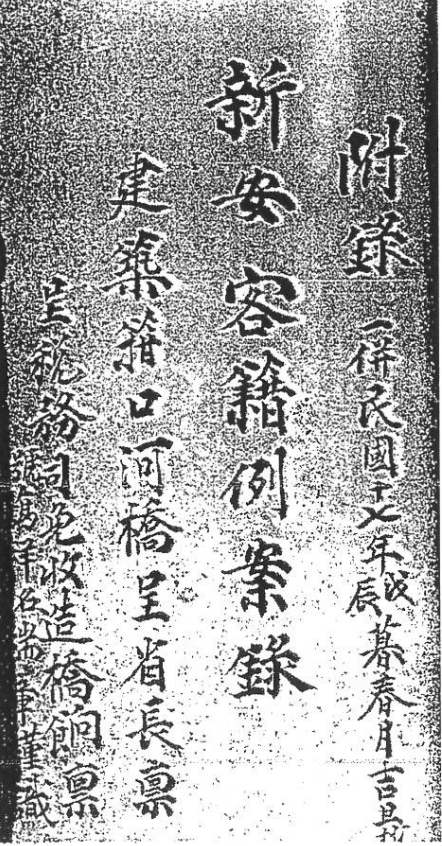 附錄 一併民國十七年戊辰暮春月吉旦
新安客籍例案錄
建築箝口河橋呈省長稟
呈稅務司免收造橋餉稟
筆謹識